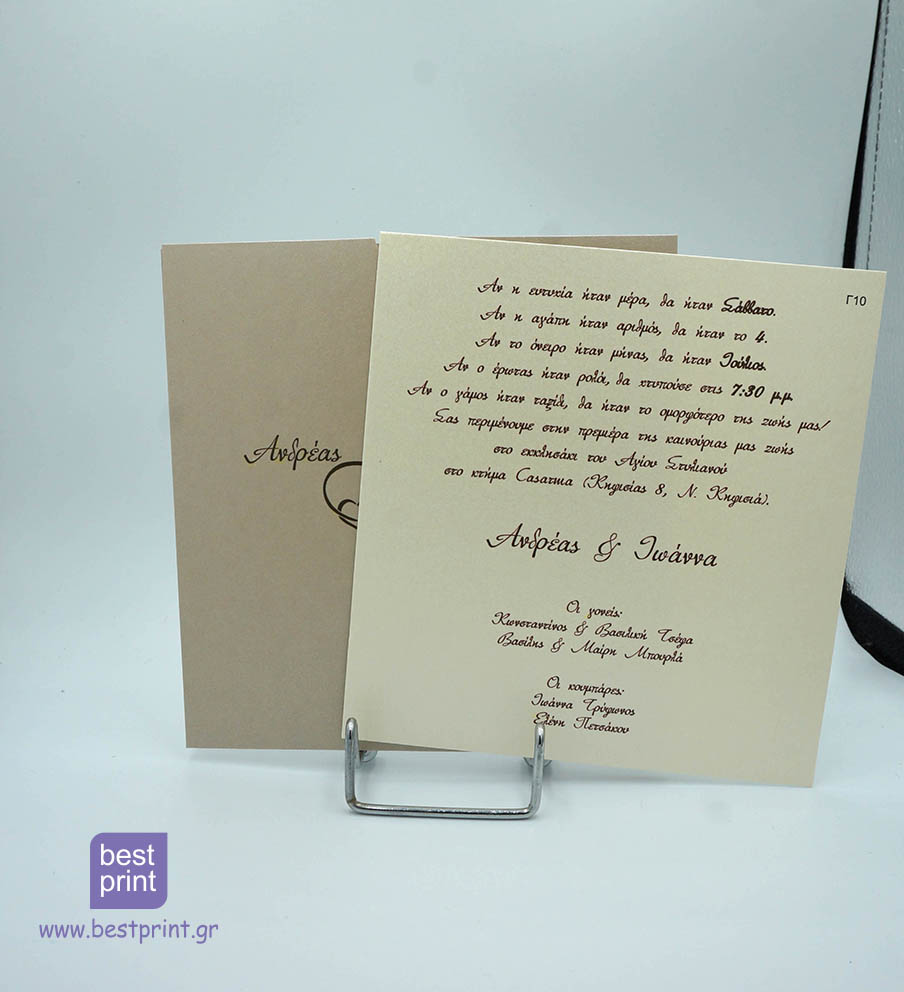 Αν η ευτυχία ήταν μέρα, θα ήταν Σάββατο.
Αν η αγάπη ήταν αριθμός, θα ήταν το 4.
Αν το όνειρο ήταν μήνας, θα ήταν Ιούλιος.
Αν ο έρωτας ήταν ρολόι, θα χτυπούσε στις 7:30 μ.μ.
Αν ο γάμος ήταν ταξίδι, θα ήταν το ομορφότερο της ζωής μας!
Σας περιμένουμε στην πρεμιέρα της καινούριας μας ζωής
στο εκκλησάκι του Αγίου Στυλιανού
στο κτήμα Casarma (Κηφισίας 8, Ν. Κηφισιά).
Ανδρέας & Ιωάννα
Οι γονείς:
Κωνσταντίνος & Βασιλική Τσέφα
Βασίλης & Μαίρη Μπουρλά
Οι κουμπάρες:
Ιωάννα Τρύφωνος
Ελένη Πετσάκου
Γ10
Ανδρέας
best
print
www.bestprint.gr